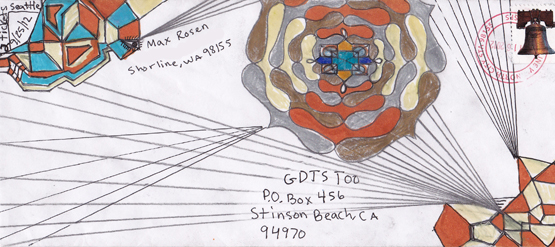 Seattle
Max Rosen
Shorline, WA 98155
GDTS Too
P.O. Box 456
Stinson Beach, CA
94970